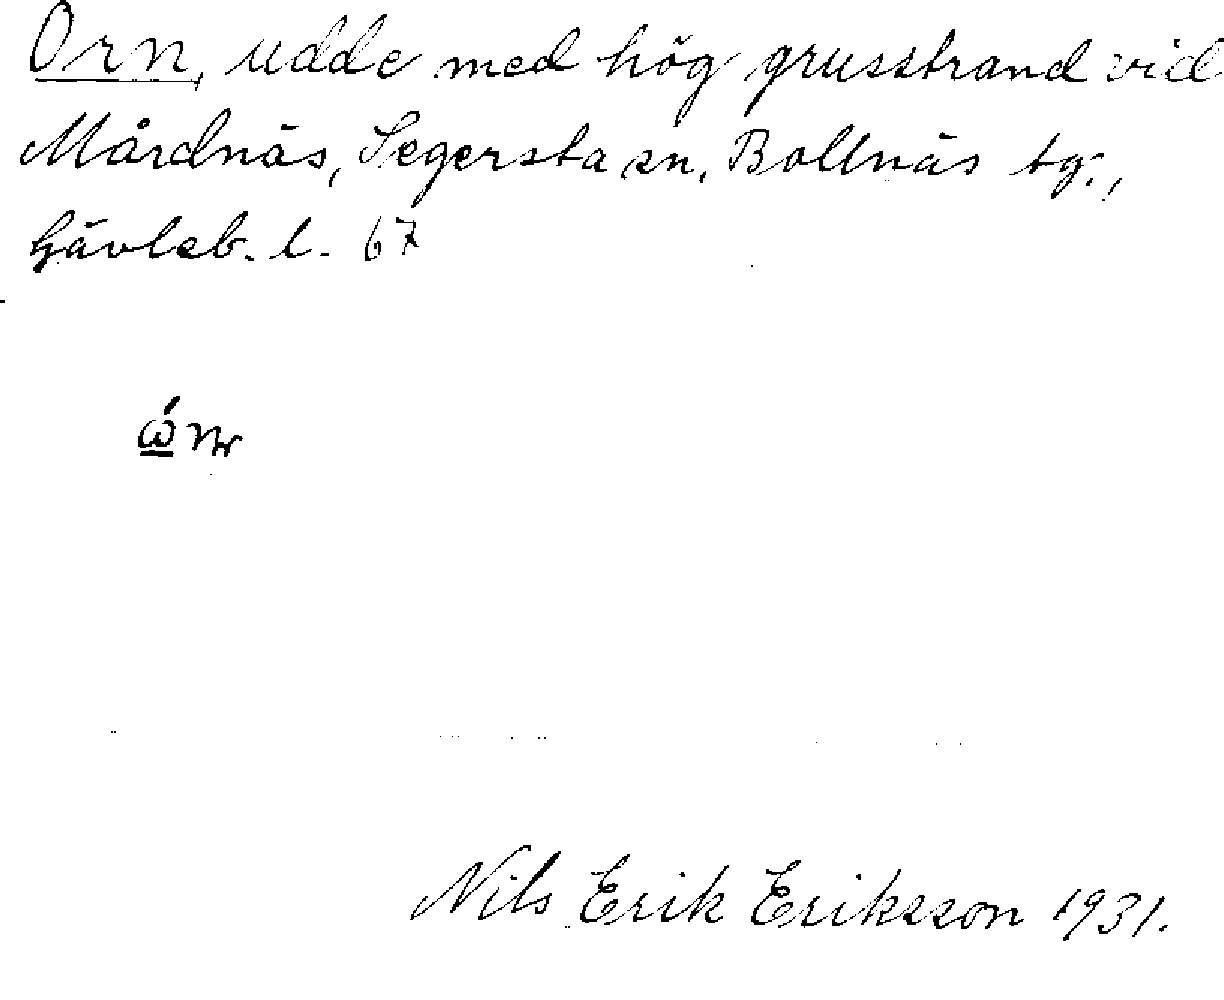 Orn, udde med hög grusstrand vid
Mårdnäs, Segersta sn, Bollnäs tg.,
Gävleb. l. 67
Nils Erik Eriksson 1931.